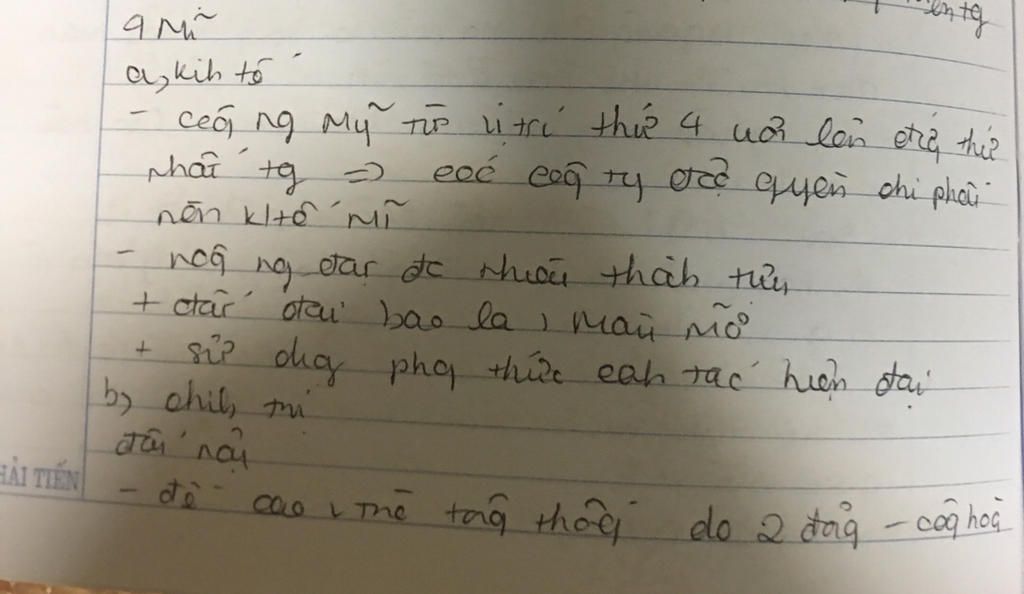 ên tg
4 Mĩ
a, kih tế
- côg ng Mỹ từ vị trí thứ 4 vươn lên đứg thứ
nhất tg => các côg ty độc quyền chi phối
nền k/tế Mĩ
- nôg ng đạt đc nhiều thàh tựu
+ đất đai bao la, màu mỡ
+ sử dụg phg thức cah tác hiện đại
b, chíh trị
đối nội
- đề cao, tổg thốg do 2 đảg - côg hoà
HẢI TIẾN